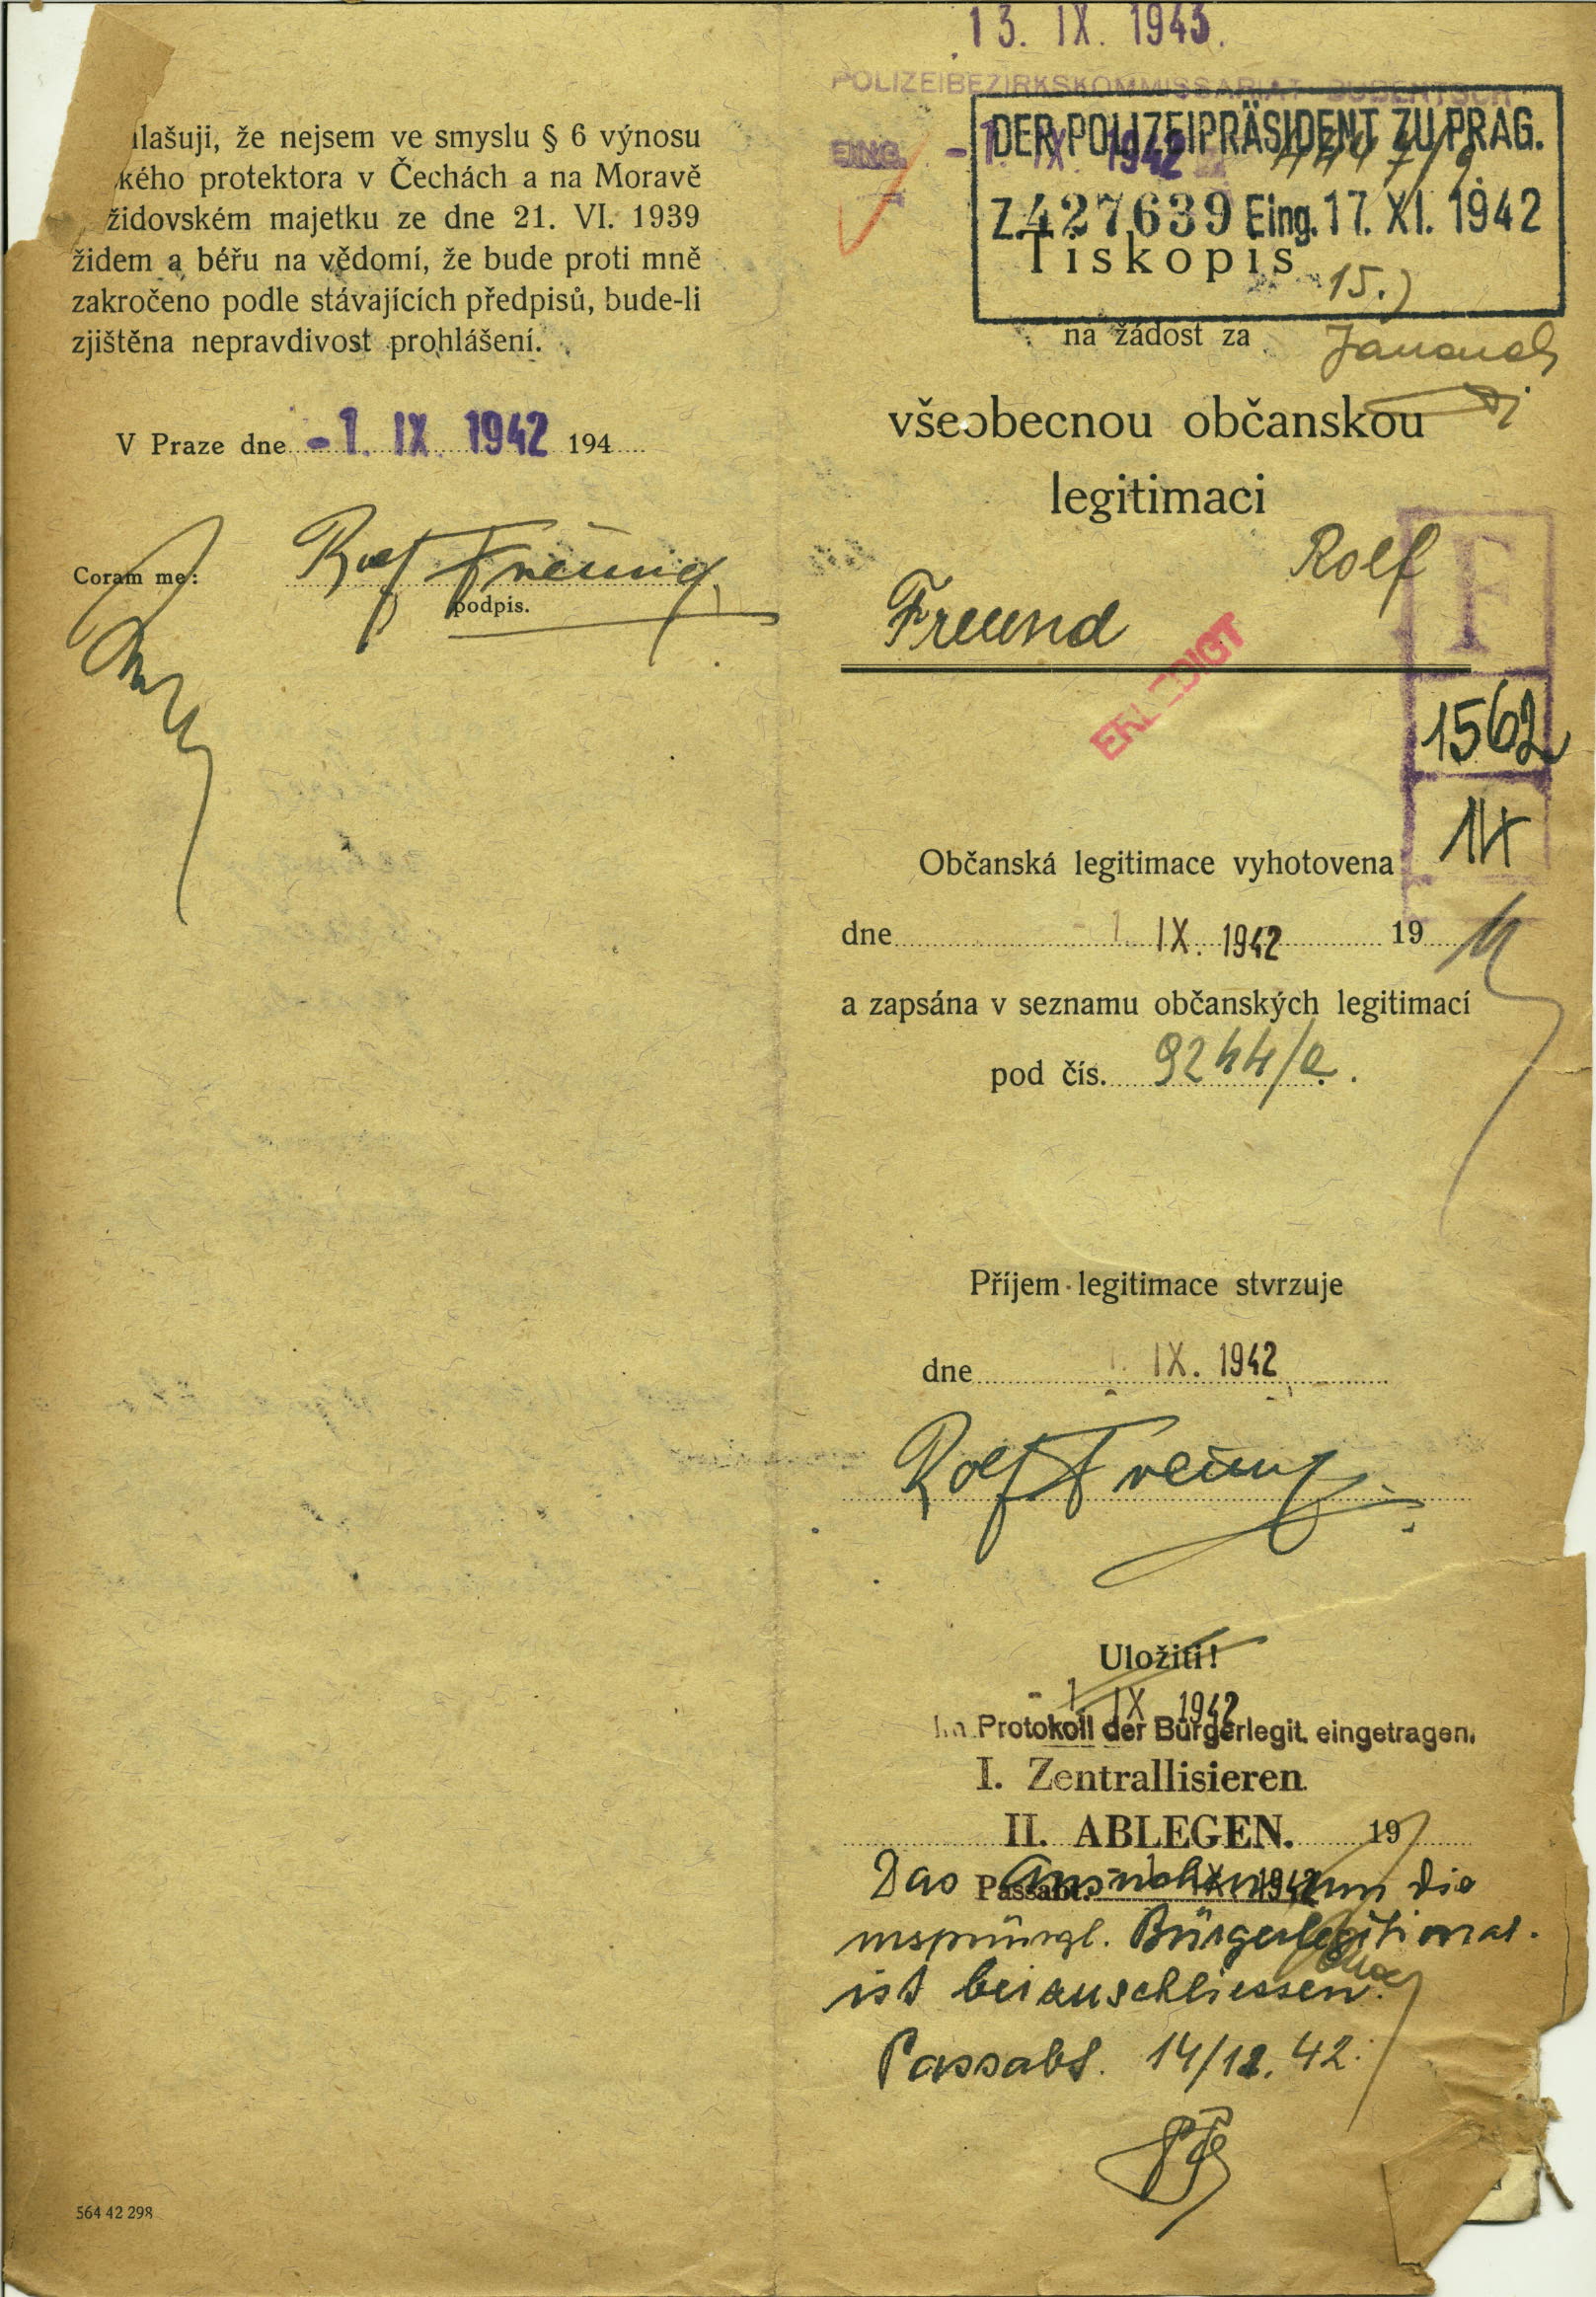 lašuji, že nejsem ve smyslu § 6 výnosu
kého protektora v Čechách a na Moravě
židovském majetku ze dne 21. VI. 1939
židem a béřu na vědomí, že bude proti mně
zakročeno podle stávajících předpisů, bude-li
zjištěna nepravdivost prohlášení.
V Praze dne - 1. IX. 1942 194
Coram me: Rolf Freund
podpis.
564 42 298
13. IX. 1943.
POLIZEIBEZIRKSKOMMISSARIAT BUBENTSCH
EING. - 1. IX. 1942
DER POLIZEIPRÄSIDENT ZU PRAG.
Z. 427639 Eing. 17. XI. 1942
Tiskopis
15.)
na žádost za
všeobecnou občanskou
legitimaci
Rolf
Freund
F
ERLEDIGT
1562
14
Občanská legitimace vyhotovena
dne - 1. IX. 1942 19
a zapsána v seznamu občanských legitimací
pod čís. 9244/a.
Příjem legitimace stvrzuje
dne 1. IX. 1942
Rolf Freund
Uložiti!
- 1 IX 1942
Im Protokoll der Bürgerlegit. eingetragen.
I. Zentrallisieren
II. ABLEGEN. 19
Passabt. IX 1942
Das Ansuchen um die
ursprüngl. Bürgerlegitimat.
ist beianschliessen.
Passabt. 14/12. 42.